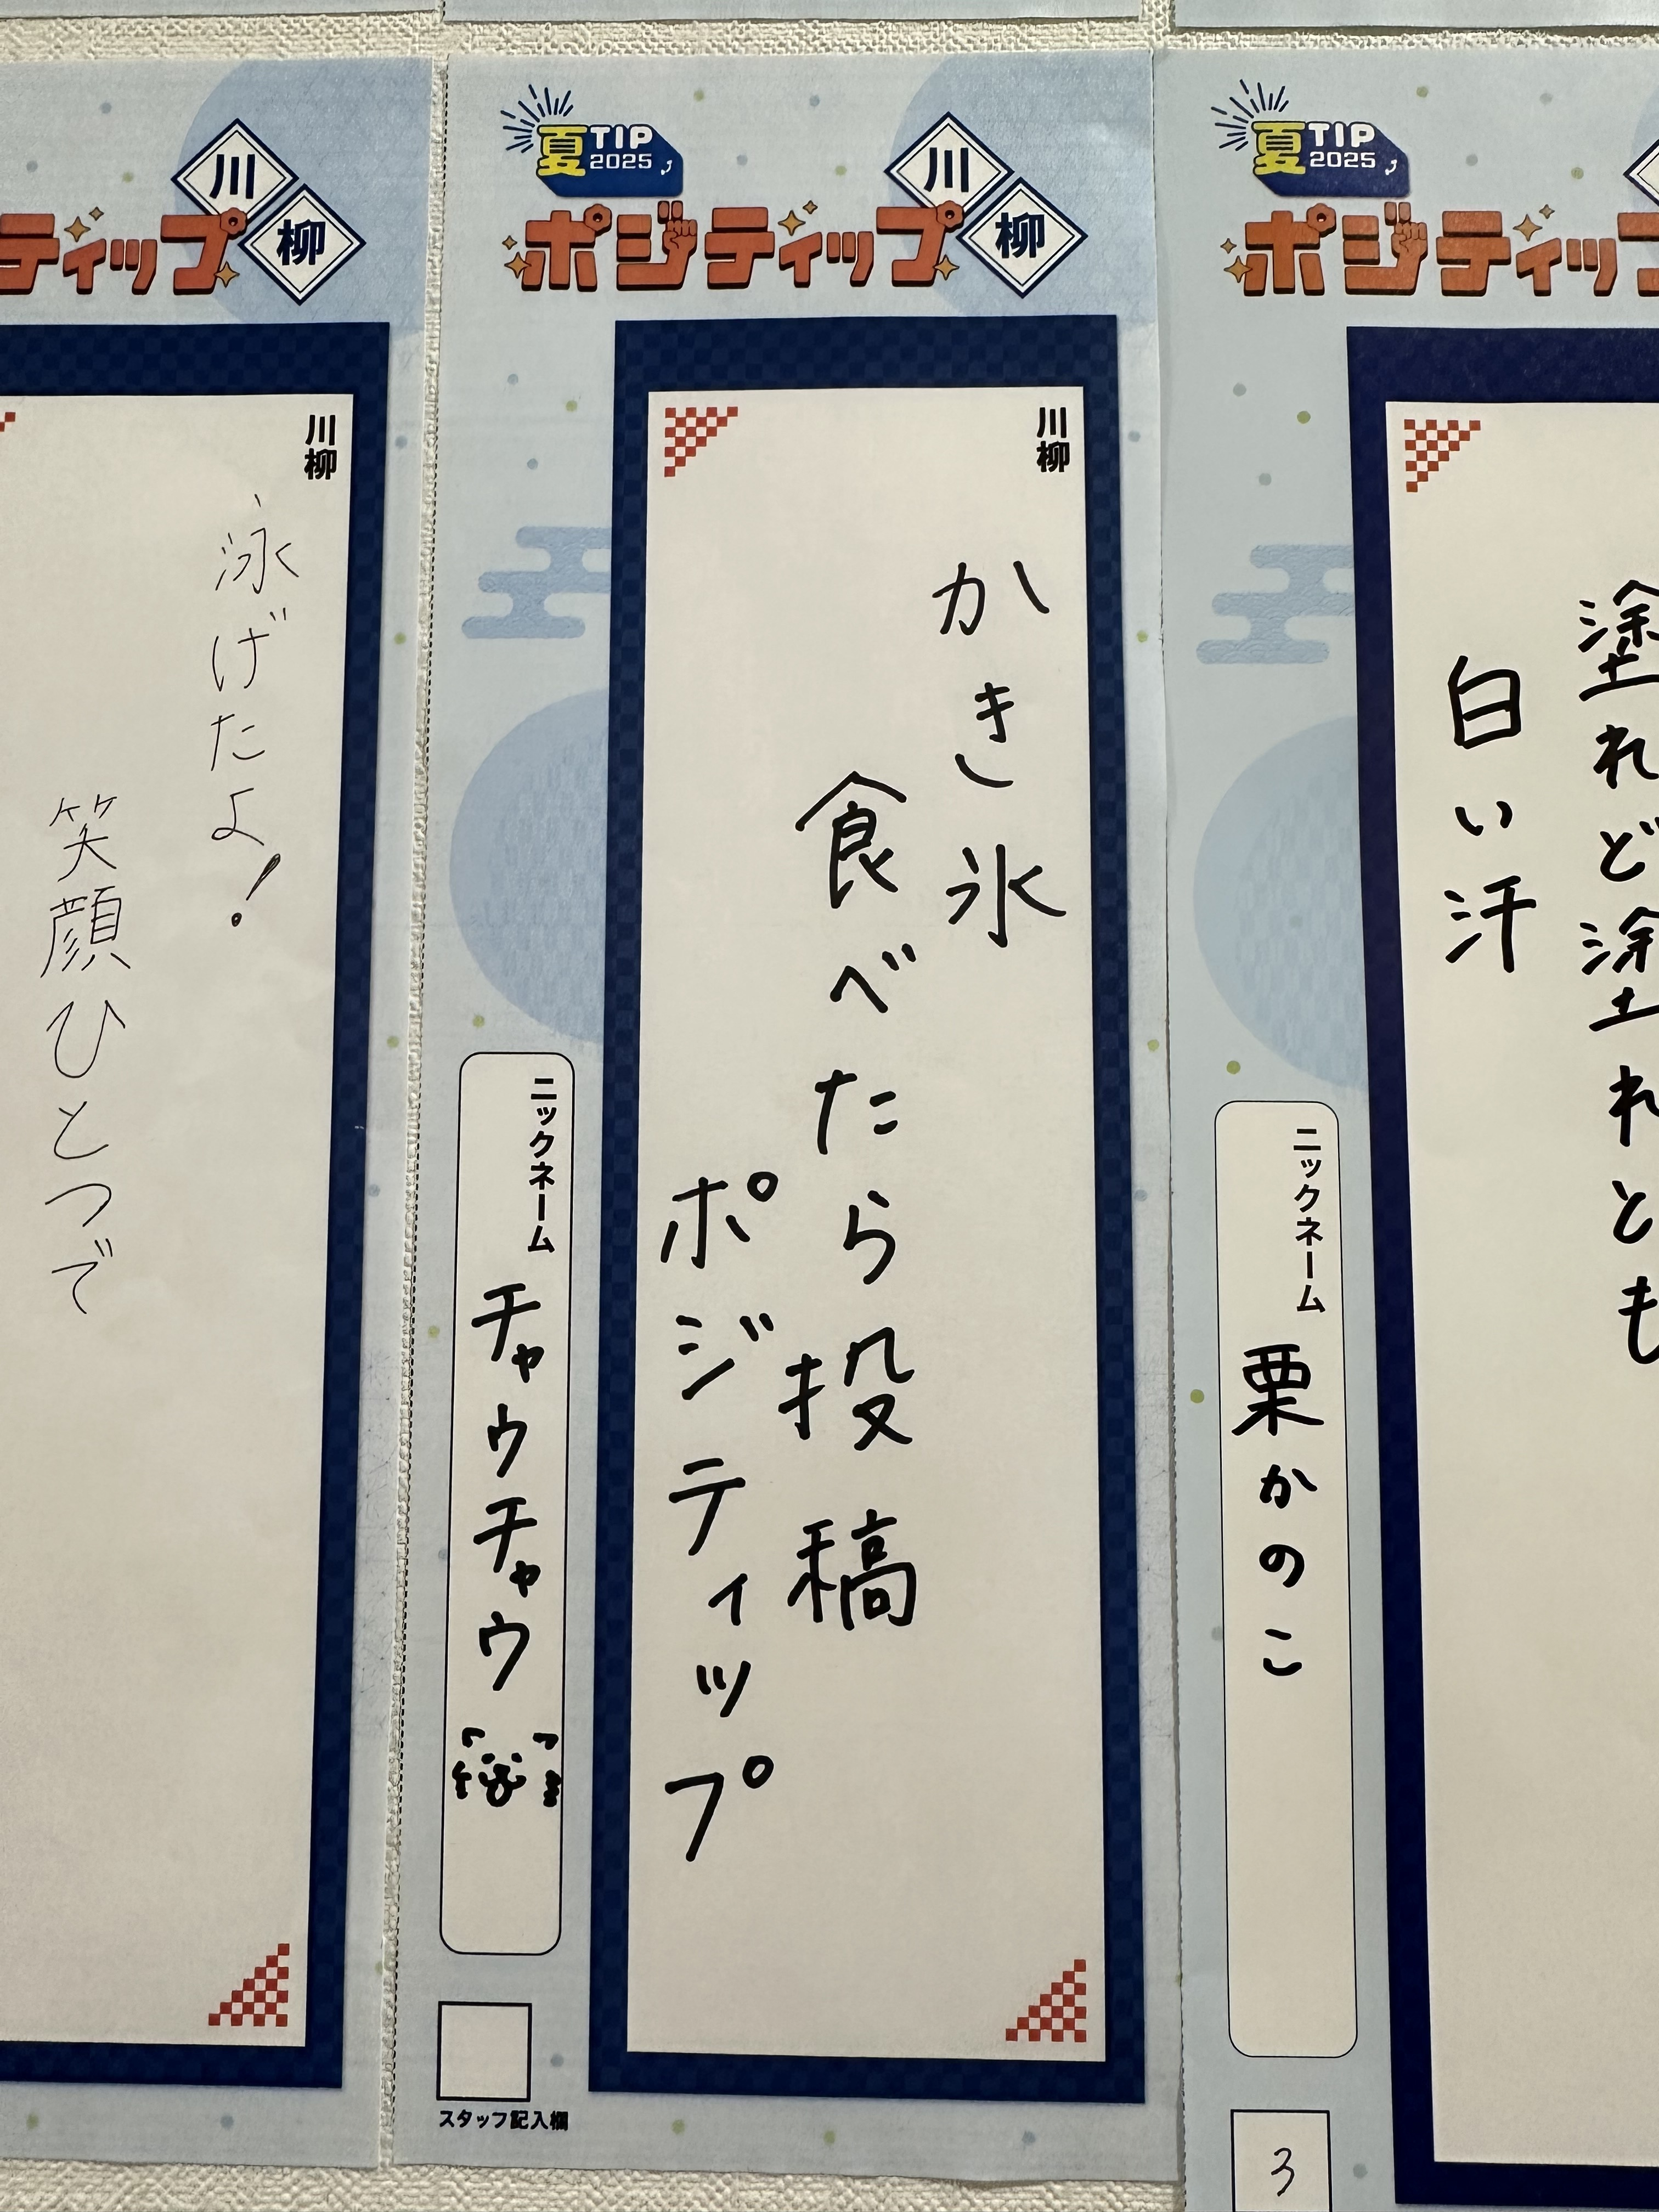 ティップ
川柳
川柳
泳げたよ!
笑顔ひとつで
夏TIP
2025
ポジティップ
川柳
川柳
かき氷
食べたら投稿
ポジティップ
ニックネーム
チャウチャウ
スタッフ記入欄
夏TIP
2025
ポジティッ
塗れど塗れとも
白い汗
ニックネーム
栗かのこ
3